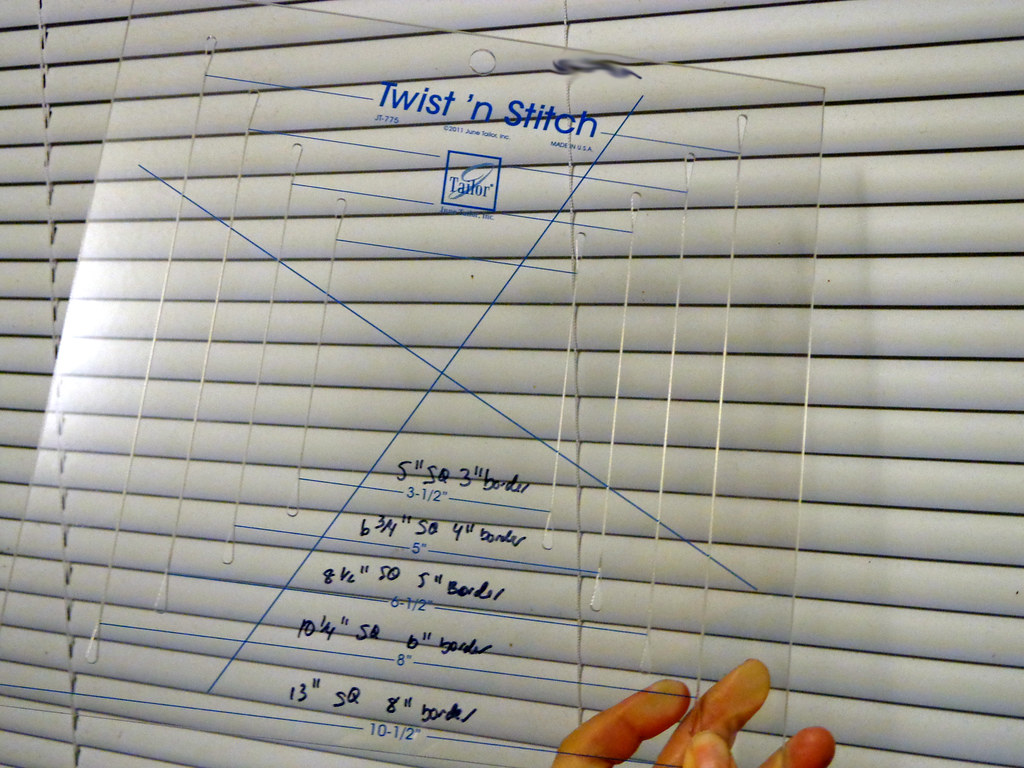 Twist 'n Stitch
JT-775
©2011 June Tailor, Inc.
MADE IN U.S.A.
Tailor®
June Tailor, Inc.
5" SQ 3" border
3-1/2"
6 3/4" SQ 4" border
5"
8 1/2" SQ 5" Border
6-1/2"
10 1/4" SQ 6" border
8"
13" SQ 8" border
10-1/2"